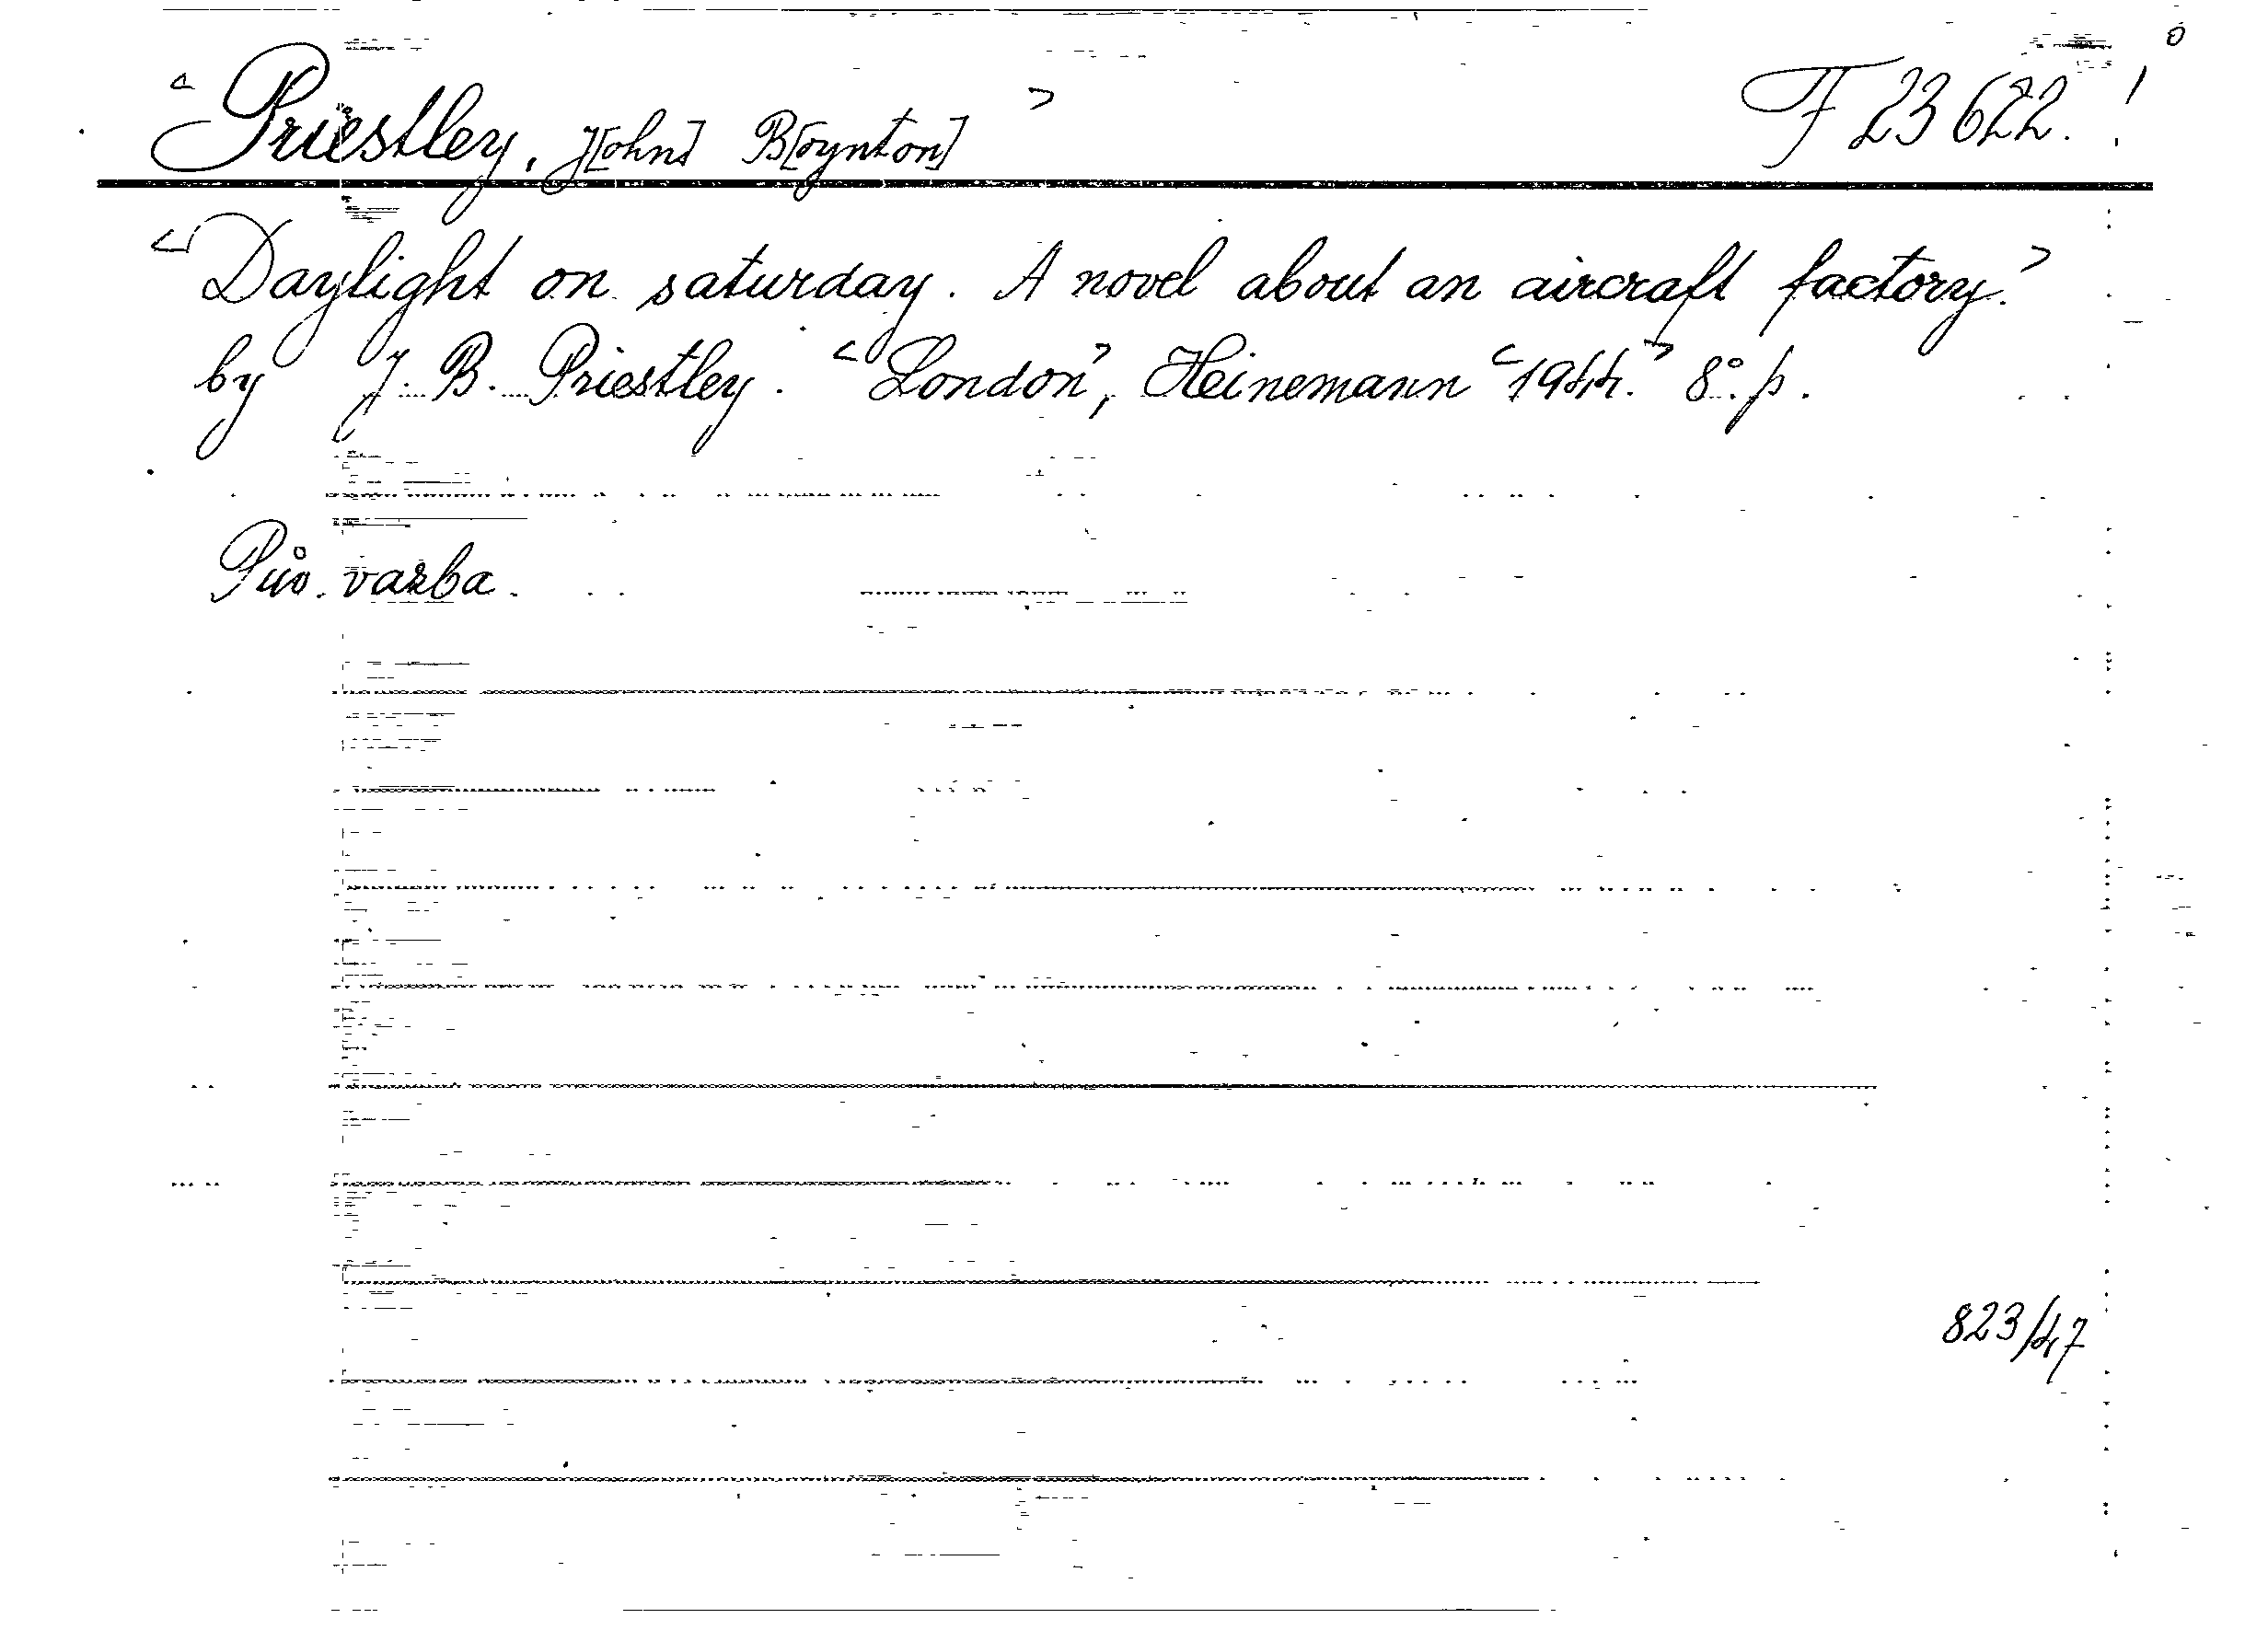 <Priestley, J[ohn] B[oynton]> F 23622.!
<Daylight on saturday. A novel about an aircraft factory.>
by J. B. Priestley. <London>, Heinemann <1944.> 8°. p.
Pův. vazba.
823/47